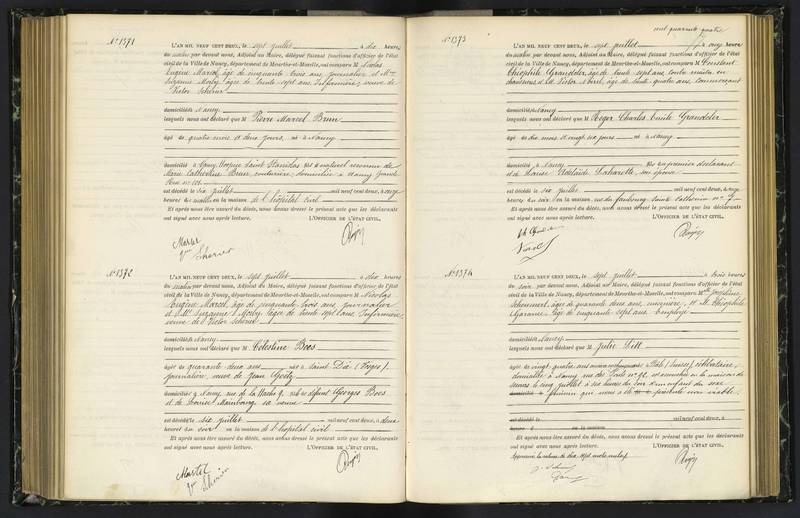 N° 1371
L'AN MIL NEUF CENT DEUX, le sept juillet à dix heures
du matin par devant nous, Adjoint au Maire, délégué faisant fonctions d'officier de l'état
civil de la Ville de Nancy, département de Meurthe-et-Moselle, ont comparu M Nicolas
Eugène Marcel, âgé de cinquante trois ans, journalier et Mme
Suzanne âgée de trente sept ans, Infirmière, veuve de
Victor
domiciliés Nancy
lesquels nous ont déclaré que M Pierre Marcel Brun
âgé de quatre mois et deux jours, né à Nancy
domicilié à Nancy, hospice Saint Stanislas, fils naturel reconnu de
Marie Catherine Brun, couturière, domiciliée à Nancy, grande
rue n°
est décédé le six juillet mil neuf cent deux, à onze
heures du matin en la maison de l'hôpital civil
Et après nous être assuré du décès, nous avons dressé le présent acte que les déclarants
ont signé avec nous après lecture. L'OFFICIER DE L'ÉTAT CIVIL,
N° 1372
L'AN MIL NEUF CENT DEUX, le sept juillet à dix heures
du matin par devant nous, Adjoint au Maire, délégué faisant fonctions d'officier de l'état
civil de la Ville de Nancy, département de Meurthe-et-Moselle, ont comparu M Nicolas
Eugène Marcel, âgé de cinquante trois ans, journalier
et Mme Suzanne âgée de trente sept ans, Infirmière,
veuve de Victor
domiciliés Nancy
lesquels nous ont déclaré que M Célestine Boes
âgée de quarante deux ans née à Saint Dié (Vosges),
journalière, veuve de Jean
domiciliée à Nancy, rue de la fille de défunt Georges Boes
et de Louise sa veuve
est décédée le six juillet mil neuf cent deux, à deux
heures du soir en la maison de l'hôpital civil
Et après nous être assuré du décès, nous avons dressé le présent acte que les déclarants
ont signé avec nous après lecture. L'OFFICIER DE L'ÉTAT CIVIL,
cent quarante quatre
N° 1373
L'AN MIL NEUF CENT DEUX, le sept juillet à onze heures
du matin par devant nous, Adjoint au Maire, délégué faisant fonctions d'officier de l'état
civil de la Ville de Nancy, département de Meurthe-et-Moselle, ont comparu M Constant
Théophile Grandcler, âgé de trente sept ans, contre maître en
chaussures et M. Victor âgé de trente quatre ans, commerçant
domiciliés Nancy
lesquels nous ont déclaré que M Roger Charles Emile Grandcler
âgé de dix mois et vingt six jours né à Nancy
domicilié à Nancy fils du premier déclarant
et de Louise Adélaïde son épouse
est décédé le six juillet mil neuf cent deux, à onze
heures du soir en la maison rue du faubourg Sainte Catherine n°
Et après nous être assuré du décès, nous avons dressé le présent acte que les déclarants
ont signé avec nous après lecture. L'OFFICIER DE L'ÉTAT CIVIL,
N° 1374
L'AN MIL NEUF CENT DEUX, le sept juillet à trois heures
du soir par devant nous, Adjoint au Maire, délégué faisant fonctions d'officier de l'état
civil de la Ville de Nancy, département de Meurthe-et-Moselle, ont comparu Mlle Joséphine
âgée de quarante deux ans, et M. Théophile
âgé de cinquante sept ans, Employé
domiciliés Nancy
lesquels nous ont déclaré que M Julie
âgée de vingt quatre ans (Suisse) célibataire,
domiciliée à Nancy, rue n° est accouchée en la maison de
secours le cinq juillet à six heures du soir d'un enfant du sexe
féminin que nous a été présenté non viable.
est décédé le mil neuf cent deux, à
heures d en la maison
Et après nous être assuré du décès, nous avons dressé le présent acte que les déclarants
ont signé avec nous après lecture. L'OFFICIER DE L'ÉTAT CIVIL,
Approuvé la rature de dix sept mots nuls